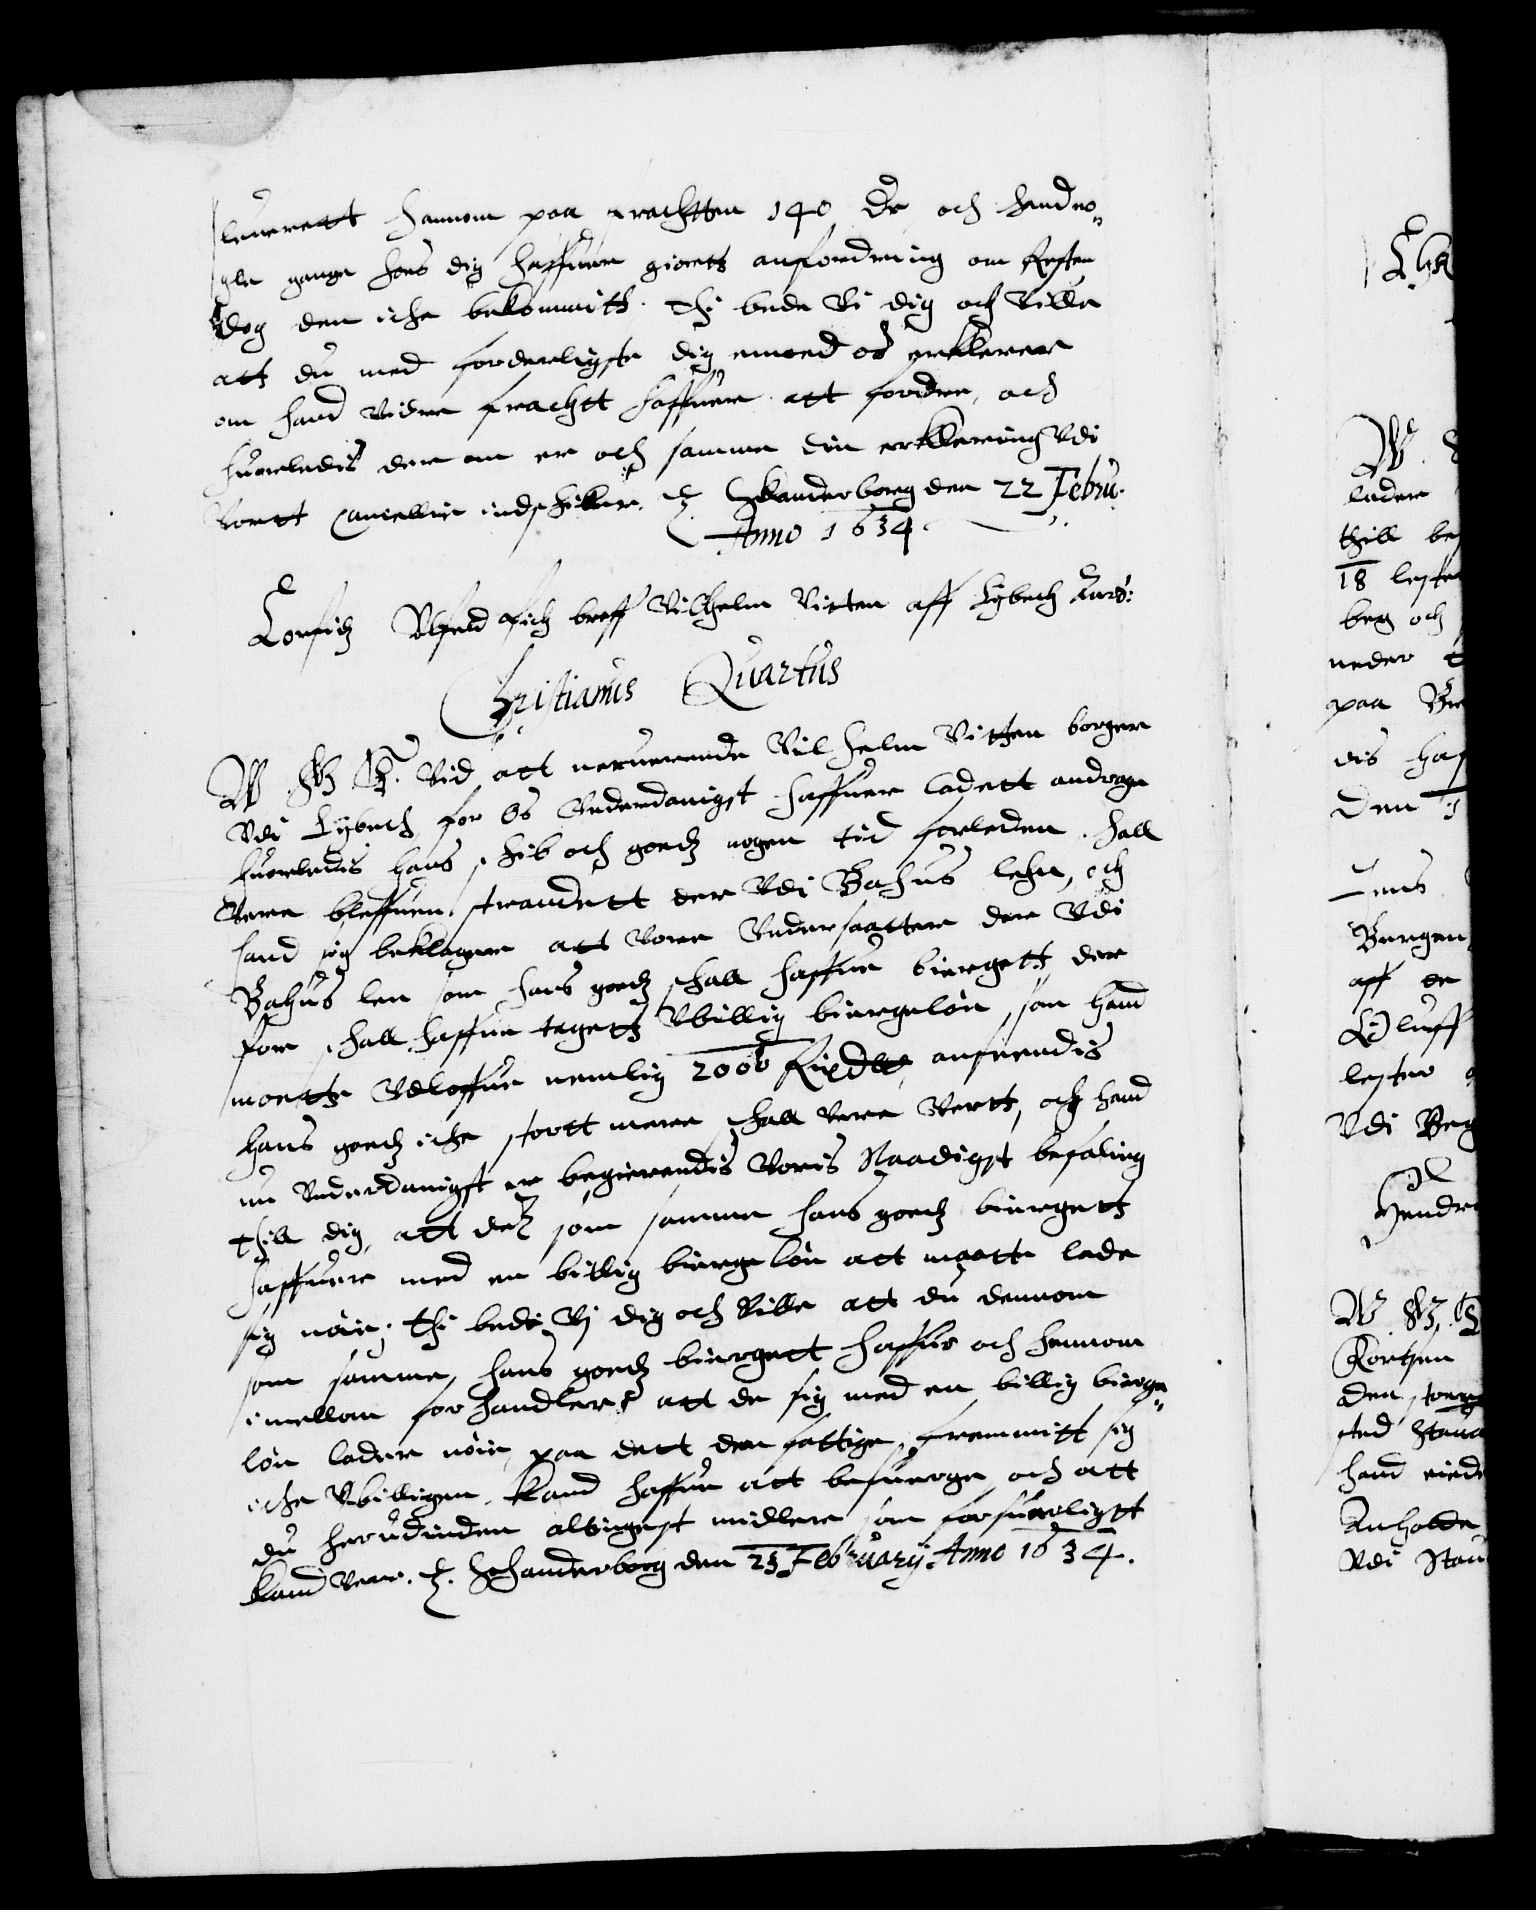 leuerett hannom paa frachtten 140 Dr och hand no¬
gle gange hos dig haffuer giortt anfordring om Resten
dog den iche bekommitt. Thi bede Vi dig och Ville
att du med forderligste dig emod os erklerer
om hand videre frachtt haffuer att fordre, och
huorledis der om er och samme din erklering Vdi
Vortt Cancellie indschicker. Skanderborg den 22 Febru:
Anno 1634.
Corfitz Vlfeld fich breff Vilhelm Vitten aff Lybech Anrö:
Christianus Quartus
W. G. T. Vid att neruerende Vilhelm Vitten borger
Vdi Lybech for Os Vnderdanigst haffuer ladett andrage
huorledis hans schib och godz nogen tid forleden. schall
Vere bleffuen strandett der Vdi Bahus lehn, och
hand sig beklager att Vore Vndersaatter der Vdi
Bahus len som hans godz schall haffue biergett, der
for schall haffue tagett Vbillig biergeløn, som hand
motte Vdloffue nemlig 2000 Rixdlr, anseendis
hans godz iche stortt mere schall vere Vertt, och hand
nu Vnderdanigst er begierendis Voris Naadigst befaling
till dig, att de som samme hans godz biergett
haffuer med en billig biergeløn att maatte lade
sig nøie; thi bede Vj dig och Ville att du dennom
som samme hans godz biergett haffuer och hannom
imellom forhandler att de sig med en billig bierge¬
løn lader nøie, paa dett den fattige fremmitt sig
iche Vbilligen kand haffue att besuerge och att
du herudinden altingest midler som forsuarligst
kand vere. Schanderborg den 23 February Anno 1634.
W. G. T.
lader
thill
18 lester
beg och
neder
paa
dis
Den
Jens
Bergen
aff
Oluff
lester
Vdi Berg
W. G. T.
den
sted
hand
Anholdt
Vdi